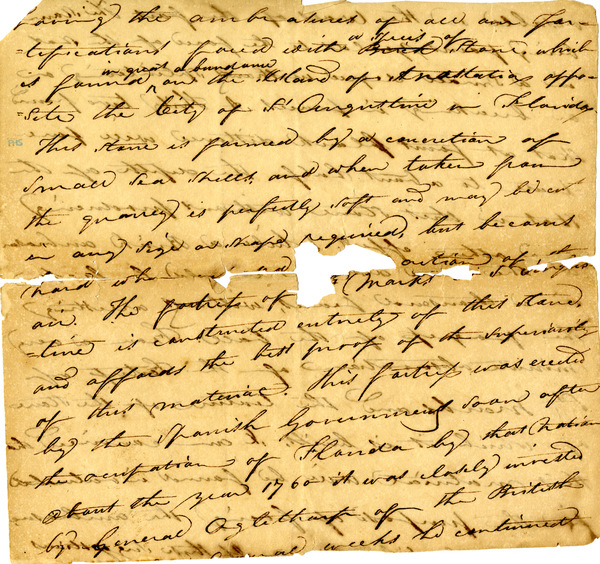 the embrasures of all our for-
-tifications faced with a species of Stone which
is found in great abundance on the Island of Anastatia oppo-
site the City of St Augustine in Florida
This stone is formed by a concretion of
small Sea Shells, and when taken from
the quarry is perfectly soft and may be cut
in any size or shape required, but becomes
hard whe
air. The fortress of (Marks
-tine is constructed entirely of this stone,
and affords the best proof of the superiority
of this material. This fortress was erected
by the Spanish Government soon after
the occupation of Florida by that Nation
About the year 1760 it was closely invested
by General Oglethorp of the British
weeks he continued